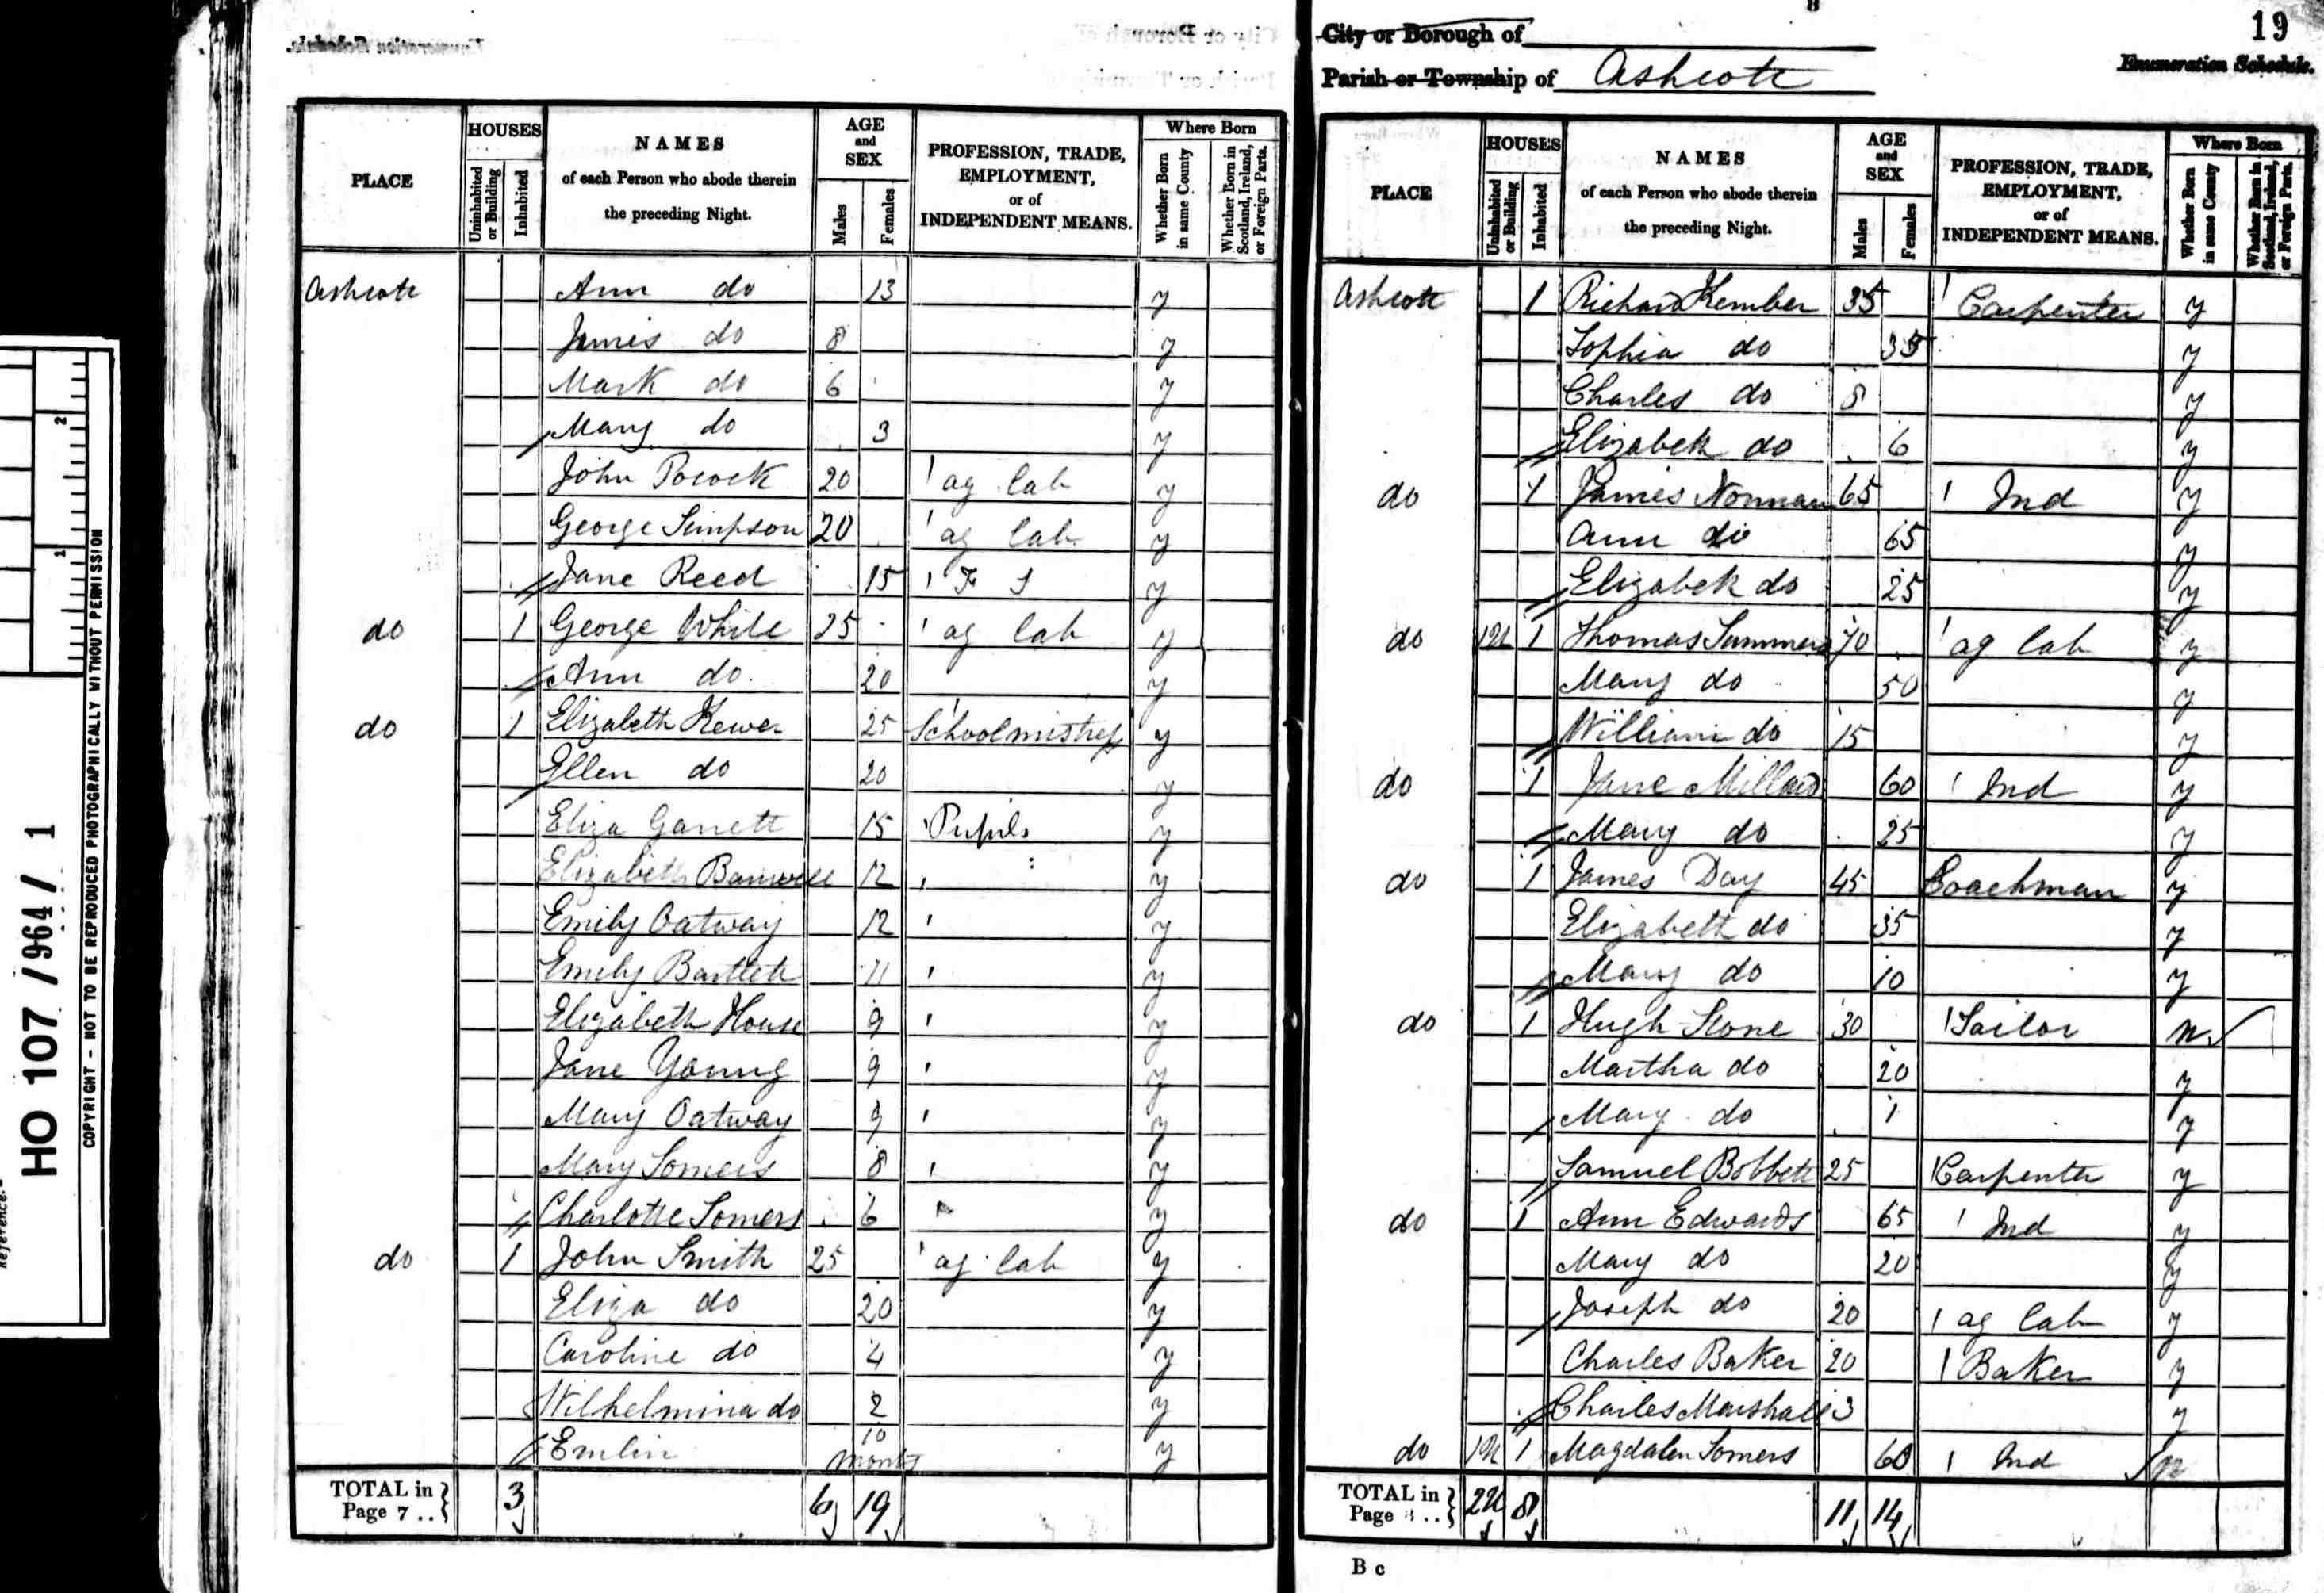 HO 107 / 964 / 1
COPYRIGHT - NOT TO BE REPRODUCED PHOTOGRAPHICALLY WITHOUT PERMISSION
Reference:-
2
1
PLACE
HOUSES
Uninhabited or Building
Inhabited
NAMES
of each Person who abode therein
the preceding Night.
AGE
and
SEX
Males
Females
PROFESSION, TRADE,
EMPLOYMENT,
or of
INDEPENDENT MEANS.
Where Born
Whether Born in same County
Whether Born in Scotland, Ireland, or Foreign Parts.
Ashcott Ann do 13 y
James do 8 y
Mark do 6 y
Mary do 3 y
John Pocock 20 ag lab y
George Simpson 20 ag lab y
Jane Reed 15 F S y
do 1 George White 25 ag lab y
Ann do 20 y
do 1 Elizabeth Kewer 25 Schoolmistress y
Ellen do 20 y
Eliza Garrett 15 Pupils y
Elizabeth Banwell 12 y
Emily Oatway 12 y
Emily Bartlett 11 y
Elizabeth House 9 y
Jane Young 9 y
Mary Oatway 9 y
Mary Somers 8 y
Charlotte Somers 6 y
do 1 John Smith 25 ag lab y
Eliza do 20 y
Caroline do 4 y
Wilhelmina do 2 y
Emlin 10 months y
TOTAL in Page 7 .. 3 6 19
8
19
City or Borough of
Enumeration Schedule.
Parish or Township of Ashcott
PLACE
HOUSES
Uninhabited or Building
Inhabited
NAMES
of each Person who abode therein
the preceding Night.
AGE
and
SEX
Males
Females
PROFESSION, TRADE,
EMPLOYMENT,
or of
INDEPENDENT MEANS.
Where Born
Whether Born in same County
Whether Born in Scotland, Ireland, or Foreign Parts.
Ashcott 1 Richard Kember 35 Carpenter y
Sophia do 35 y
Charles do 8 y
Elizabeth do 6 y
do 1 James Norman 65 Ind y
Ann do 65 y
Elizabeth do 25 y
do 1U 1 Thomas Summers 70 ag lab y
Mary do 50 y
William do 15 y
do 1 Jane Millard 60 Ind y
Mary do 25 y
do 1 James Day 45 Coachman y
Elizabeth do 35 y
Mary do 10 y
do 1 Hugh Stone 30 Tailor n
Martha do 20 y
Mary do 1 y
Samuel Bobbett 25 Carpenter y
do 1 Ann Edwards 65 Ind y
Mary do 20 y
Joseph do 20 ag lab y
Charles Baker 20 Baker y
Charles Marshall 3 y
do 1U 1 Magdalen Somers 60 Ind n
TOTAL in Page 8 .. 2U 8 11 14
B c